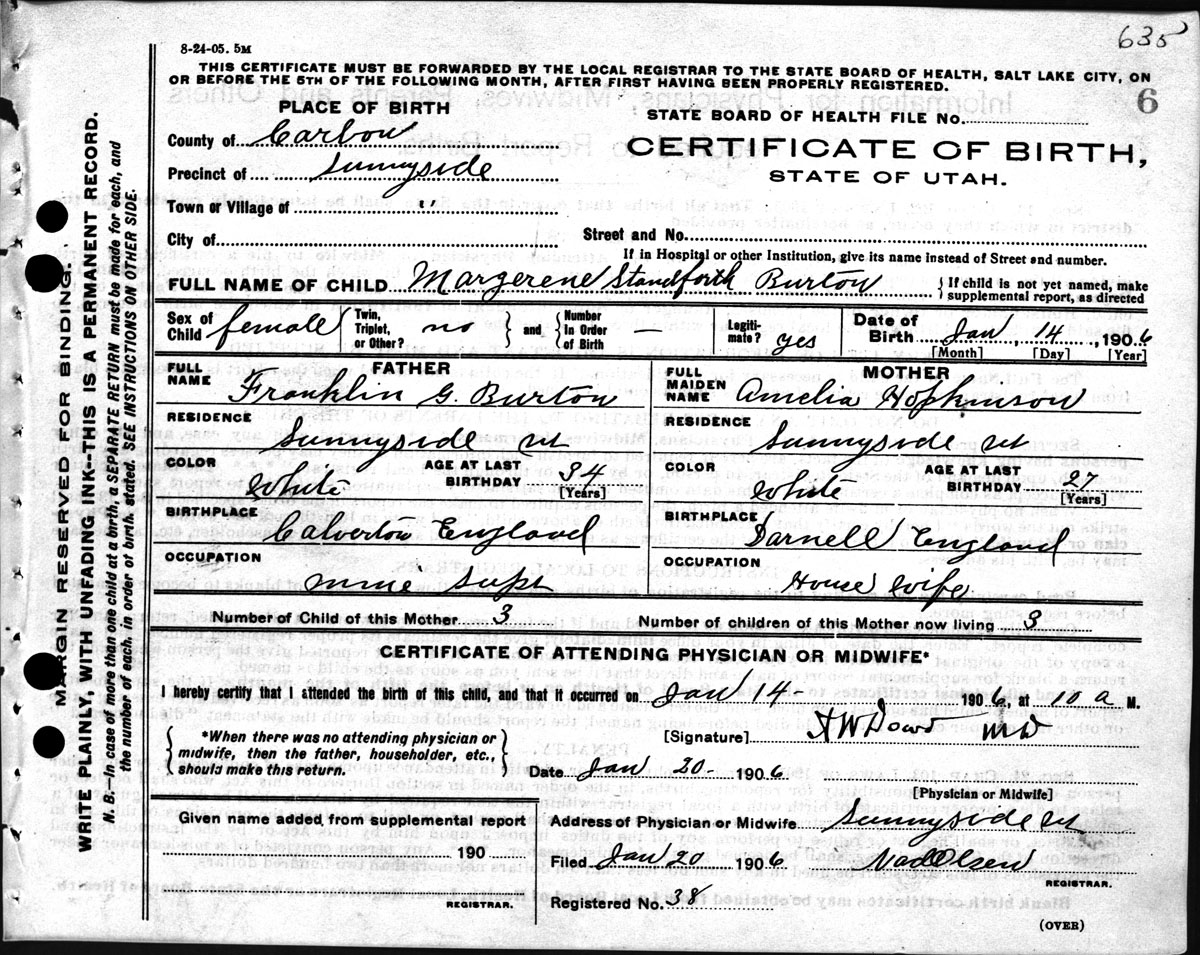 635
8-24-05. 5M
THIS CERTIFICATE MUST BE FORWARDED BY THE LOCAL REGISTRAR TO THE STATE BOARD OF HEALTH, SALT LAKE CITY, ON
OR BEFORE THE 5TH OF THE FOLLOWING MONTH, AFTER FIRST HAVING BEEN PROPERLY REGISTERED.
6
PLACE OF BIRTH
STATE BOARD OF HEALTH FILE No.
County of Carbon
CERTIFICATE OF BIRTH,
Precinct of Sunnyside
STATE OF UTAH.
Town or Village of "
City of
Street and No.
If in Hospital or other Institution, give its name instead of Street and number.
FULL NAME OF CHILD Margerene Standforth Burton { If child is not yet named, make
supplemental report, as directed
Sex of Child female { Twin, Triplet, or Other? no } and { Number In Order of Birth Legiti-mate? yes Date of Birth Jan, 14, 1906
[Month] [Day] [Year]
FATHER
FULL NAME Franklin G. Burton
RESIDENCE
Sunnyside Ut
COLOR White AGE AT LAST BIRTHDAY 34
[Years]
BIRTHPLACE
Calverton England
OCCUPATION
mine Supt
MOTHER
FULL MAIDEN NAME Amelia Hopkinson
RESIDENCE
Sunnyside Ut
COLOR White AGE AT LAST BIRTHDAY 27
[Years]
BIRTHPLACE
Darnell England
OCCUPATION
House Wife
Number of Child of this Mother 3 Number of children of this Mother now living 3
CERTIFICATE OF ATTENDING PHYSICIAN OR MIDWIFE*
I hereby certify that I attended the birth of this child, and that it occurred on Jan 14- 1906, at 10 a M.
{ *When there was no attending physician or
midwife, then the father, householder, etc.,
should make this return. }
[Signature] Dowd MD
Date Jan 20- 1906
[Physician or Midwife]
Given name added from supplemental report
190
REGISTRAR.
Address of Physician or Midwife Sunnyside Ut
Filed Jan 20 1906 Olsen
REGISTRAR.
Registered No. 38
(OVER)
MARGIN RESERVED FOR BINDING.
WRITE PLAINLY, WITH UNFADING INK--THIS IS A PERMANENT RECORD.
N. B.—In case of more than one child at a birth, a SEPARATE RETURN must be made for each, and
the number of each, in order of birth, stated. SEE INSTRUCTIONS ON OTHER SIDE.